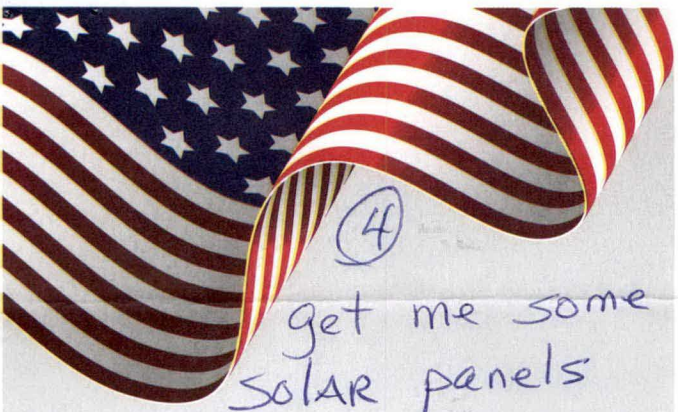 4
get me some
SolAR panels